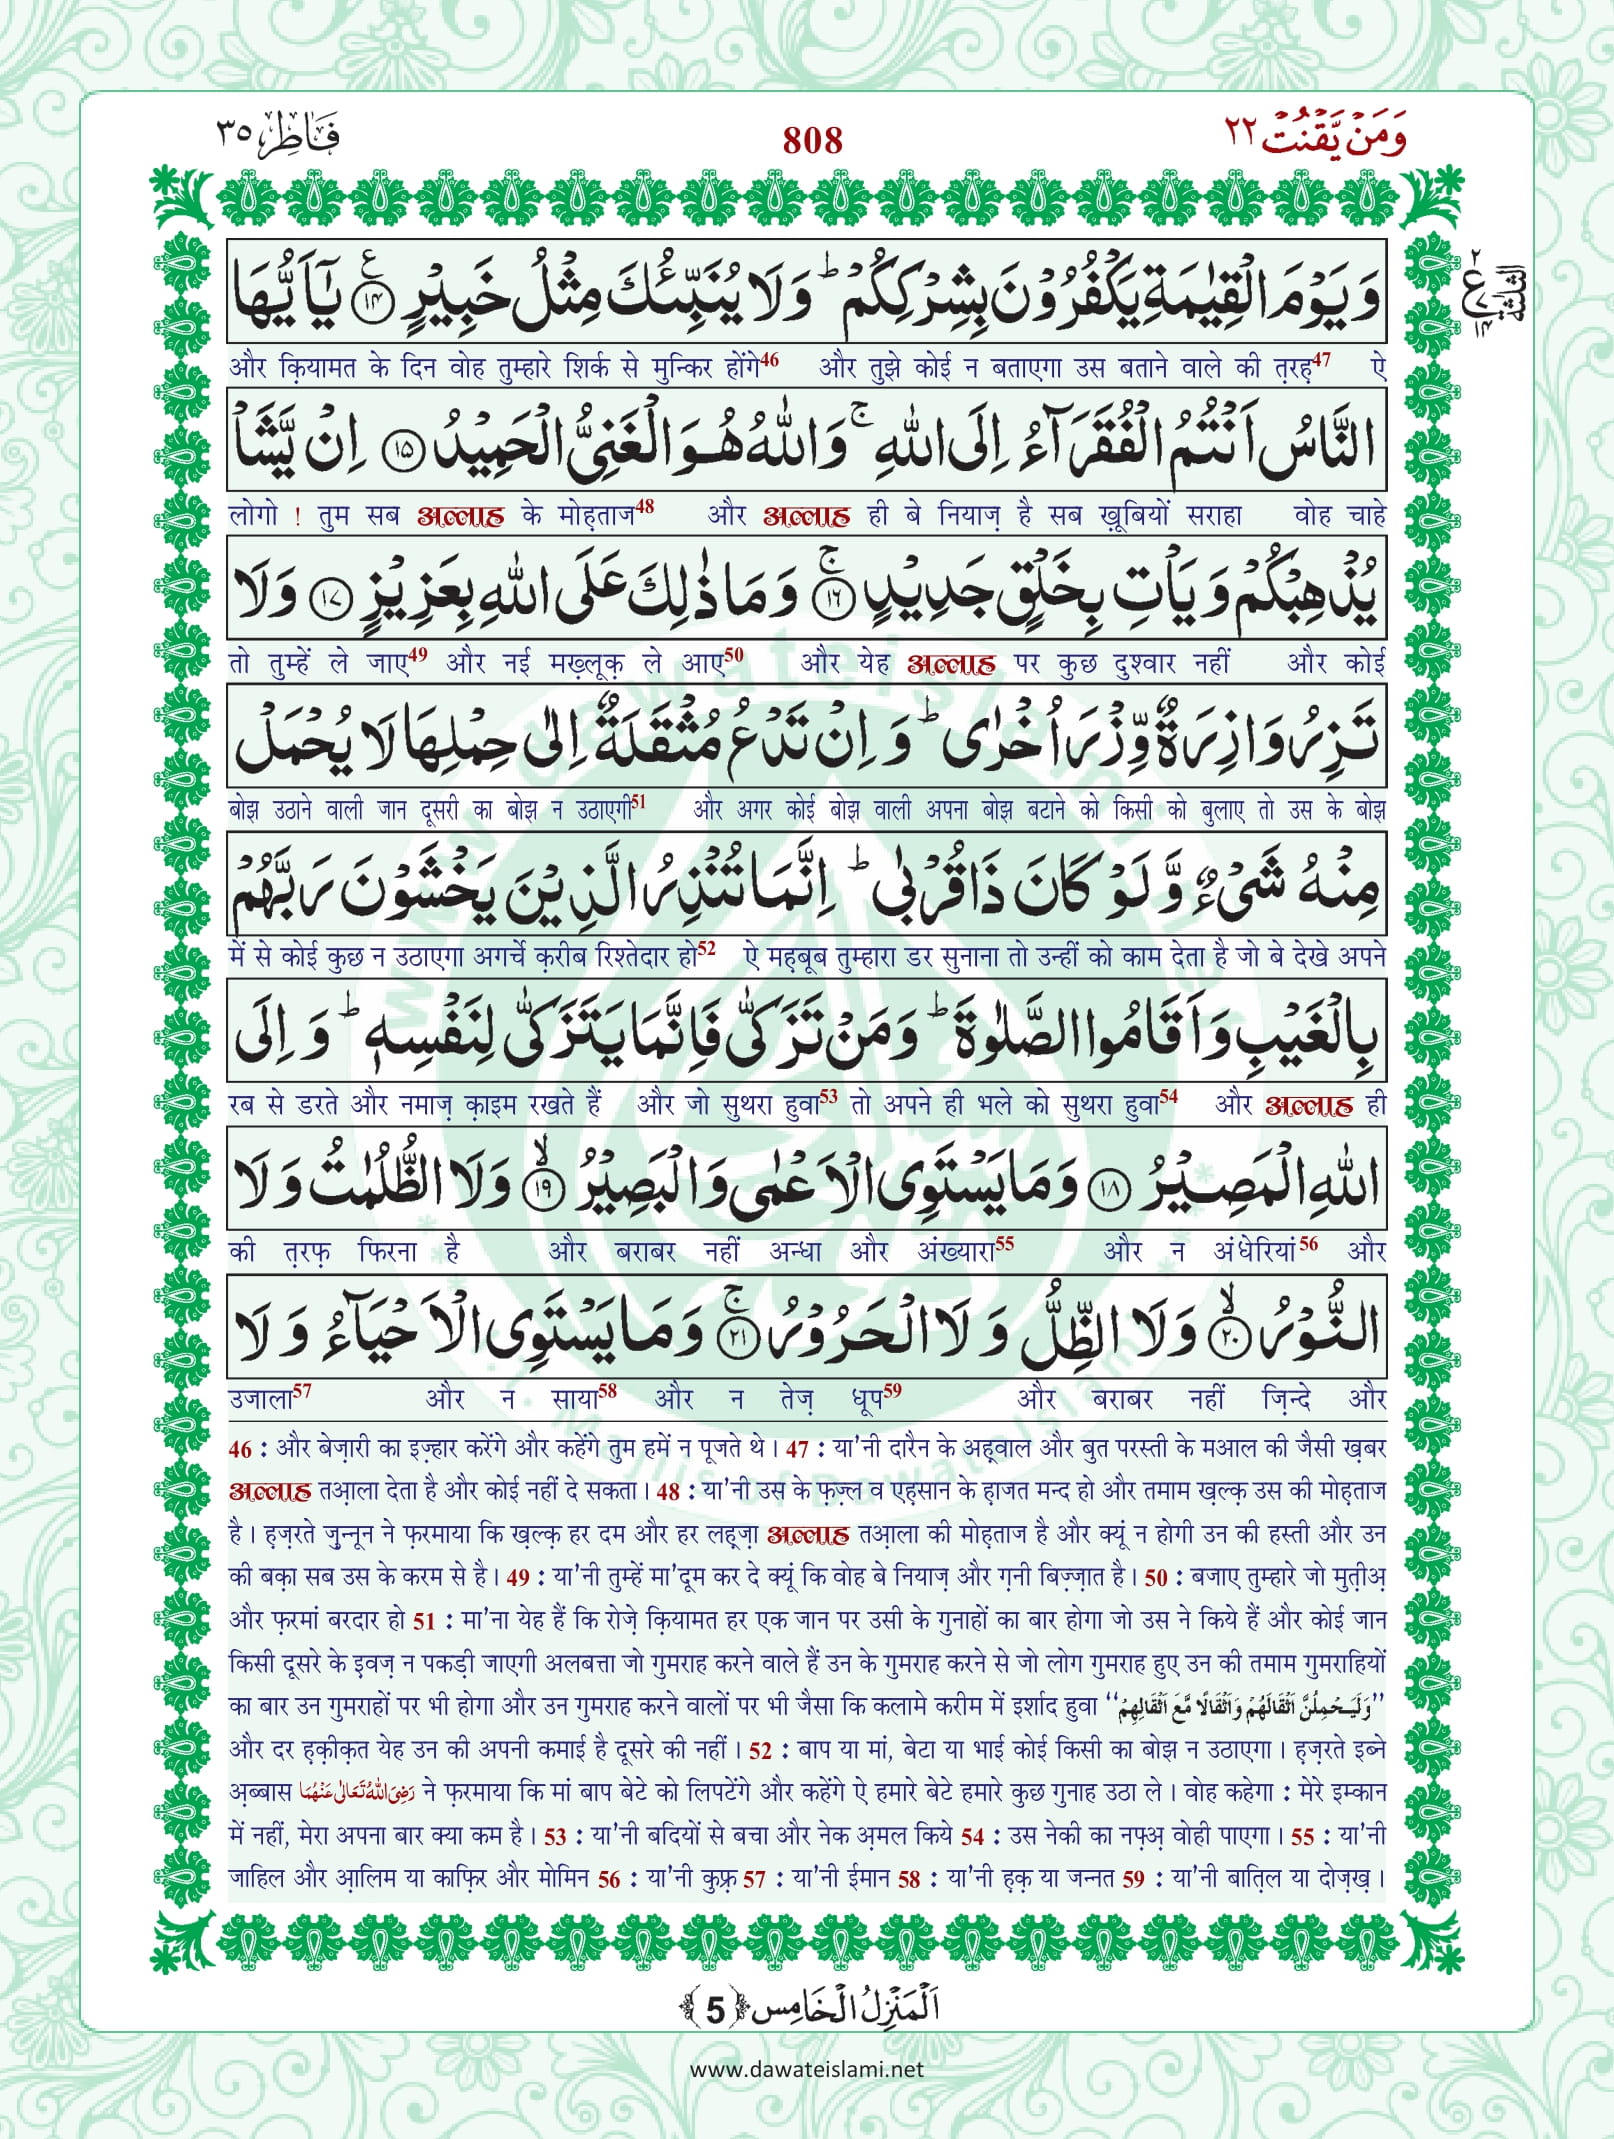 وَمَنۡ یَّقۡنُتۡ ۲۲
808
فَاطِر ۳۵
وَیَوۡمَ الۡقِیٰمَۃِ یَکۡفُرُوۡنَ بِشِرۡکِکُمۡ ؕ وَلَا یُنَبِّئُکَ مِثۡلُ خَبِیۡرٍ ﴿۱۴﴾ یٰۤاَیُّہَا
और क़ियामत के दिन वोह तुम्हारे शिर्क से मुन्किर होंगे46 और तुझे कोई न बताएगा उस बताने वाले की त़रह़47 ऐ
النَّاسُ اَنۡتُمُ الۡفُقَرَآءُ اِلَی اللّٰہِ ۚ وَاللّٰہُ ہُوَ الۡغَنِیُّ الۡحَمِیۡدُ ﴿۱۵﴾ اِنۡ یَّشَاۡ
लोगो ! तुम सब अल्लाह के मोह़ताज48 और अल्लाह ही बे नियाज़ है सब ख़ूबियों सराहा वोह चाहे
یُذۡہِبۡکُمۡ وَیَاۡتِ بِخَلۡقٍ جَدِیۡدٍ ﴿ۚ۱۶﴾ وَمَا ذٰلِکَ عَلَی اللّٰہِ بِعَزِیۡزٍ ﴿۱۷﴾ وَلَا
तो तुम्हें ले जाए49 और नई मख़्लूक़ ले आए50 और येह अल्लाह पर कुछ दुश्वार नहीं और कोई
تَزِرُ وَازِرَۃٌ وِّزۡرَ اُخۡرٰی ؕ وَ اِنۡ تَدۡعُ مُثۡقَلَۃٌ اِلٰی حِمۡلِہَا لَا یُحۡمَلۡ
बोझ उठाने वाली जान दूसरी का बोझ न उठाएगी51 और अगर कोई बोझ वाली अपना बोझ बटाने को किसी को बुलाए तो उस के बोझ
مِنۡہُ شَیۡءٌ وَّلَوۡ کَانَ ذَا قُرۡبٰی ؕ اِنَّمَا تُنۡذِرُ الَّذِیۡنَ یَخۡشَوۡنَ رَبَّہُمۡ
में से कोई कुछ न उठाएगा अगर्चे क़रीब रिश्तेदार हो52 ऐ मह़बूब तुम्हारा डर सुनाना तो उन्हीं को काम देता है जो बे देखे अपने
بِالۡغَیۡبِ وَاَقَامُوا الصَّلٰوۃَ ؕ وَمَنۡ تَزَکّٰی فَاِنَّمَا یَتَزَکّٰی لِنَفۡسِہٖ ؕ وَ اِلَی
रब से डरते और नमाज़ क़ाइम रखते हैं और जो सुथरा हुवा53 तो अपने ही भले को सुथरा हुवा54 और अल्लाह ही
اللّٰہِ الۡمَصِیۡرُ ﴿۱۸﴾ وَمَا یَسۡتَوِی الۡاَعۡمٰی وَالۡبَصِیۡرُ ﴿ۙ۱۹﴾ وَلَا الظُّلُمٰتُ وَلَا
की त़रफ़ फिरना है और बराबर नहीं अन्धा और अंख्यारा55 और न अंधेरियां56 और
النُّوۡرُ ﴿ۙ۲۰﴾ وَلَا الظِّلُّ وَلَا الۡحَرُوۡرُ ﴿ۚ۲۱﴾ وَمَا یَسۡتَوِی الۡاَحۡیَآءُ وَلَا
उजाला57 और न साया58 और न तेज़ धूप59 और बराबर नहीं ज़िन्दे और
46 : और बेज़ारी का इज़्हार करेंगे और कहेंगे तुम हमें न पूजते थे । 47 : या'नी दारैन के अह़वाल और बुत परस्ती के मआल की जैसी ख़बर
अल्लाह तआ़ला देता है और कोई नहीं दे सकता । 48 : या'नी उस के फ़ज़्ल व एह़सान के ह़ाजत मन्द हो और तमाम ख़ल्क़ उस की मोह़ताज
है । ह़ज़रते ज़ुन्नून ने फ़रमाया कि ख़ल्क़ हर दम और हर लह़्ज़ा अल्लाह तआ़ला की मोह़ताज है और क्यूं न होगी उन की हस्ती और उन
की बक़ा सब उस के करम से है । 49 : या'नी तुम्हें मा'दूम कर दे क्यूं कि वोह बे नियाज़ और ग़नी बिज़्ज़ात है । 50 : बजाए तुम्हारे जो मुत़ीअ़
और फ़रमां बरदार हो 51 : मा'ना येह हैं कि रोज़े क़ियामत हर एक जान पर उसी के गुनाहों का बार होगा जो उस ने किये हैं और कोई जान
किसी दूसरे के इवज़ न पकड़ी जाएगी अलबत्ता जो गुमराह करने वाले हैं उन के गुमराह करने से जो लोग गुमराह हुए उन की तमाम गुमराहियों
का बार उन गुमराहों पर भी होगा और उन गुमराह करने वालों पर भी जैसा कि कलामे करीम में इर्शाद हुवा ‘‘وَلَیَحۡمِلُنَّ اَثۡقَالَہُمۡ وَاَثۡقَالًا مَّعَ اَثۡقَالِہِمۡ’’
और दर ह़क़ीक़त येह उन की अपनी कमाई है दूसरे की नहीं । 52 : बाप या मां, बेटा या भाई कोई किसी का बोझ न उठाएगा । ह़ज़रते इब्ने
अ़ब्बास رَضِیَ اللّٰہُ تَعَالٰی عَنۡہُمَا ने फ़रमाया कि मां बाप बेटे को लिपटेंगे और कहेंगे ऐ हमारे बेटे हमारे कुछ गुनाह उठा ले । वोह कहेगा : मेरे इम्कान
में नहीं, मेरा अपना बार क्या कम है । 53 : या'नी बदियों से बचा और नेक अ़मल किये 54 : उस नेकी का नफ़्अ़ वोही पाएगा । 55 : या'नी
जाहिल और आ़लिम या काफ़िर और मोमिन 56 : या'नी कुफ़्र 57 : या'नी ईमान 58 : या'नी ह़क़ या जन्नत 59 : या'नी बात़िल या दोज़ख़ ।
اَلۡمَنۡزِلُ الۡخَامِس ﴿5﴾
www.dawateislami.net